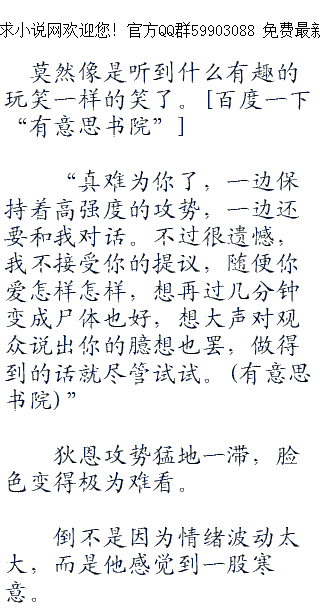 求小说网欢迎您！官方QQ群59903088 免费最新
莫然像是听到什么有趣的
玩笑一样的笑了。[百度一下
“有意思书院”]
“真难为你了，一边保
持着高强度的攻势，一边还
要和我对话。不过很遗憾，
我不接受你的提议，随便你
爱怎样怎样，想再过几分钟
变成尸体也好，想大声对观
众说出你的臆想也罢，做得
到的话就尽管试试。(有意思
书院)”
狄恩攻势猛地一滞，脸
色变得极为难看。
倒不是因为情绪波动太
大，而是他感觉到一股寒
意。